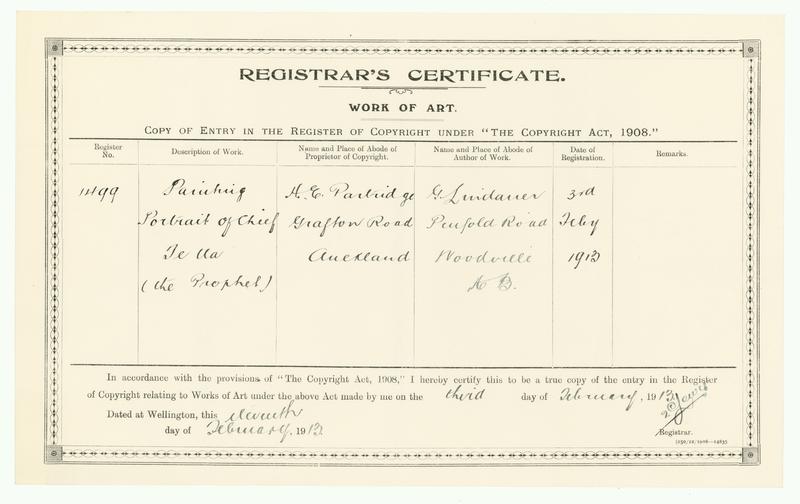 REGISTRAR'S CERTIFICATE.
WORK OF ART.
COPY OF ENTRY IN THE REGISTER OF COPYRIGHT UNDER "THE COPYRIGHT ACT, 1908."
Register No.
Description of Work.
Name and Place of Abode of Proprietor of Copyright.
Name and Place of Abode of Author of Work.
Date of Registration.
Remarks.
1499 Painting H. E. Partridge G Lindauer 3rd
Portrait of Chief Grafton Road Penfold Road Feby
Te Ua Auckland Woodville 1913
(the Prophet) H B.
In accordance with the provisions of "The Copyright Act, 1908," I hereby certify this to be a true copy of the entry in the Register
of Copyright relating to Works of Art under the above Act made by me on the third day of February, 1913
Dated at Wellington, this eleventh
day of February, 1913
Lewis
Registrar.
[250/12/1908—14635